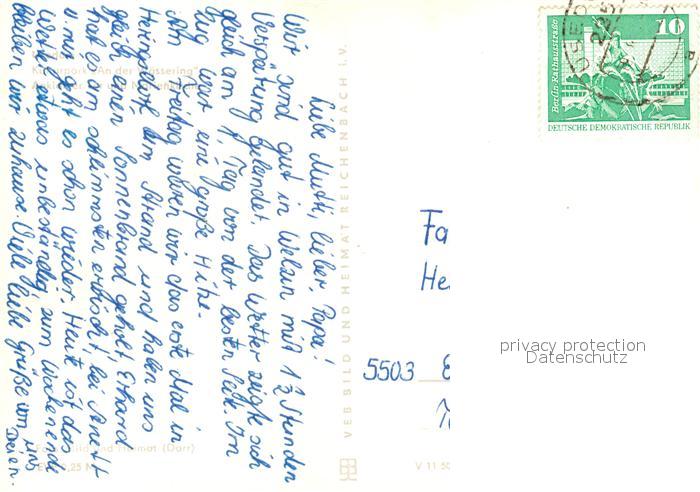 Liebe Mutti, lieber Papa!
Wir sind gut in Welzin mit 1½ Stunden
Verspätung gelandet. Das Wetter zeigte sich
gleich am 1. Tag von der besten Seite. Im
Zug war eine große Hitze.
Am Freitag waren wir das erste Mal in
am Strand und haben uns
gleich einen Sonnenbrand geholt. Erhard
hat es am schlimmsten erwischt, bei Anett
u. mir geht es schon wieder. Heute ist das
Wetter etwas unbeständig, zum Wochenende
bleiben wir zuhause. Viele liebe Grüße von uns
Dreien.
Fa
He
5503
VEB BILD UND HEIMAT REICHENBACH I. V.
Bild und Heimat (Darr)
V 11 50
10
Berlin-Rathausstraße
DEUTSCHE DEMOKRATISCHE REPUBLIK
privacy protection
Datenschutz